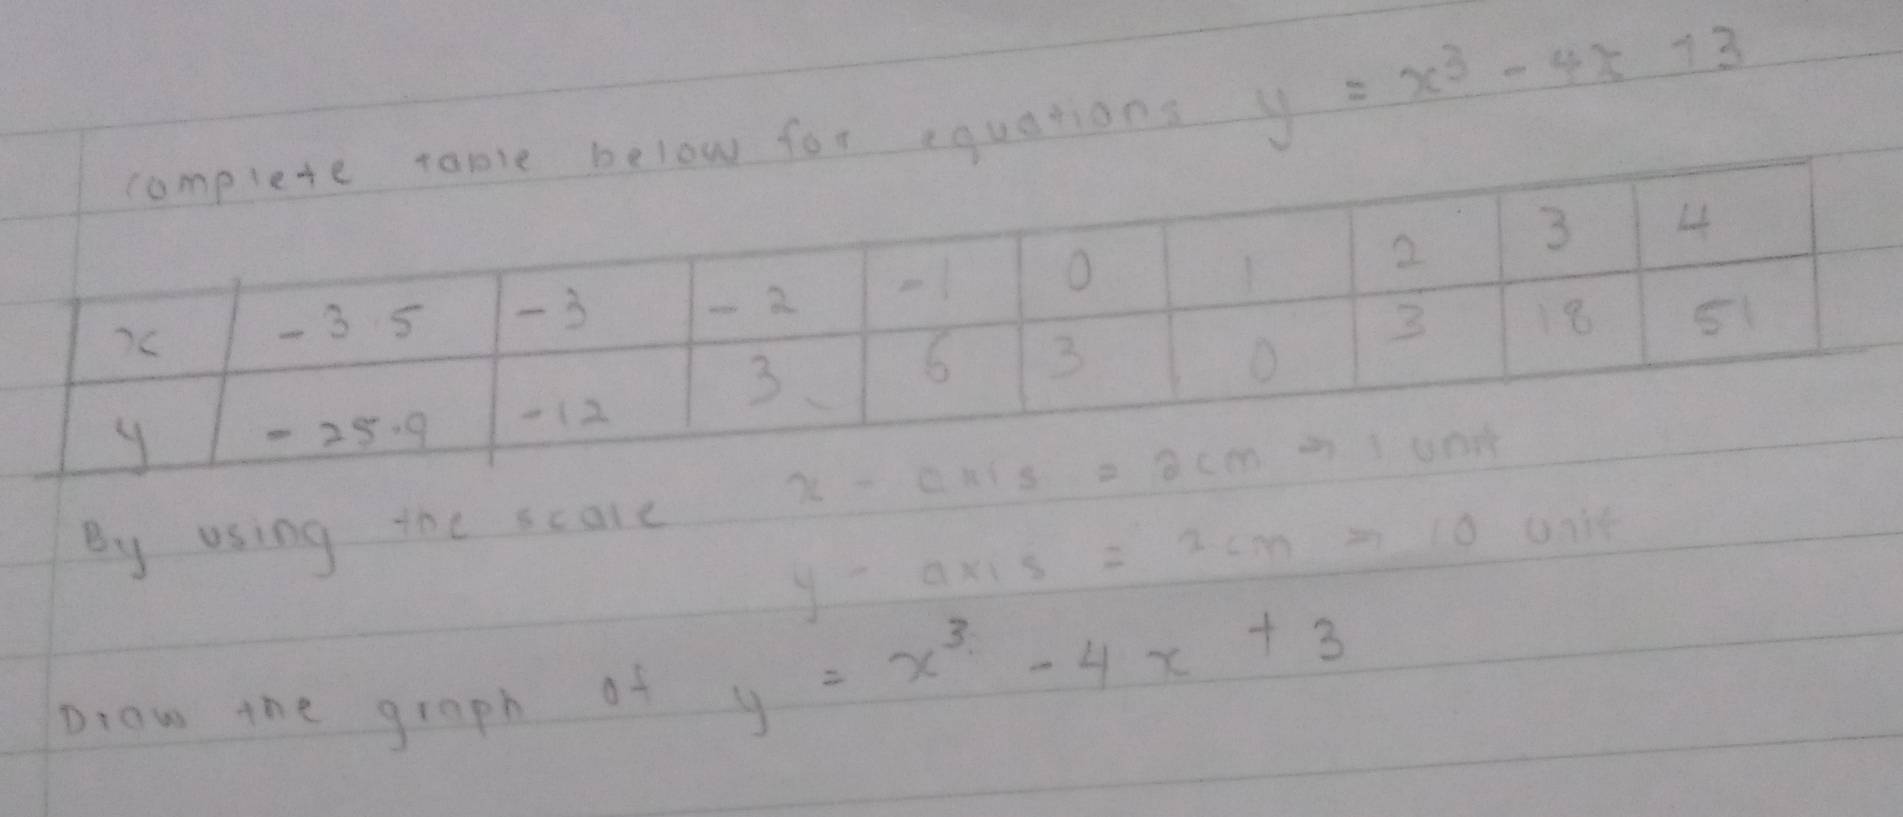 complete table below for equations y = x³ - 4x + 3
x -3.5 -3 -2 -1 0 1 2 3 4
y -25.9 -12 3 6 3 0 3 18 51
By using the scale x - axis = 2cm ⇒ 1 unit
y - axis = 2cm ⇒ 10 unit
Draw the graph of y = x³ - 4x + 3